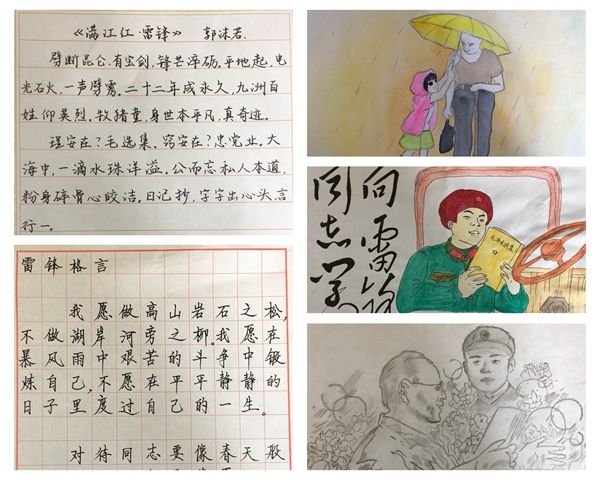 《满江红·雷锋》 郭沫若
劈断昆仑,有宝剑,锋芒淬砺,平地起,电
光石火,一声劈雳。二十二年成永久,九洲百
姓仰英烈,牧猪童,身世本平凡,真奇迹。
理安在?毛选集,窍安在?忠党业。大
海中,一滴水珠洋溢。公而忘私人本道,
粉身碎骨心皎洁。日记抄,字字出心头,言
行一。
雷锋格言
我愿做高山岩石之松,
不做湖岸河旁之柳。我愿在
暴风雨中艰苦的斗争中锻
炼自己,不愿在平平静静的
日子里度过自己的一生。
对待同志要像春天般
向雷锋
同志学